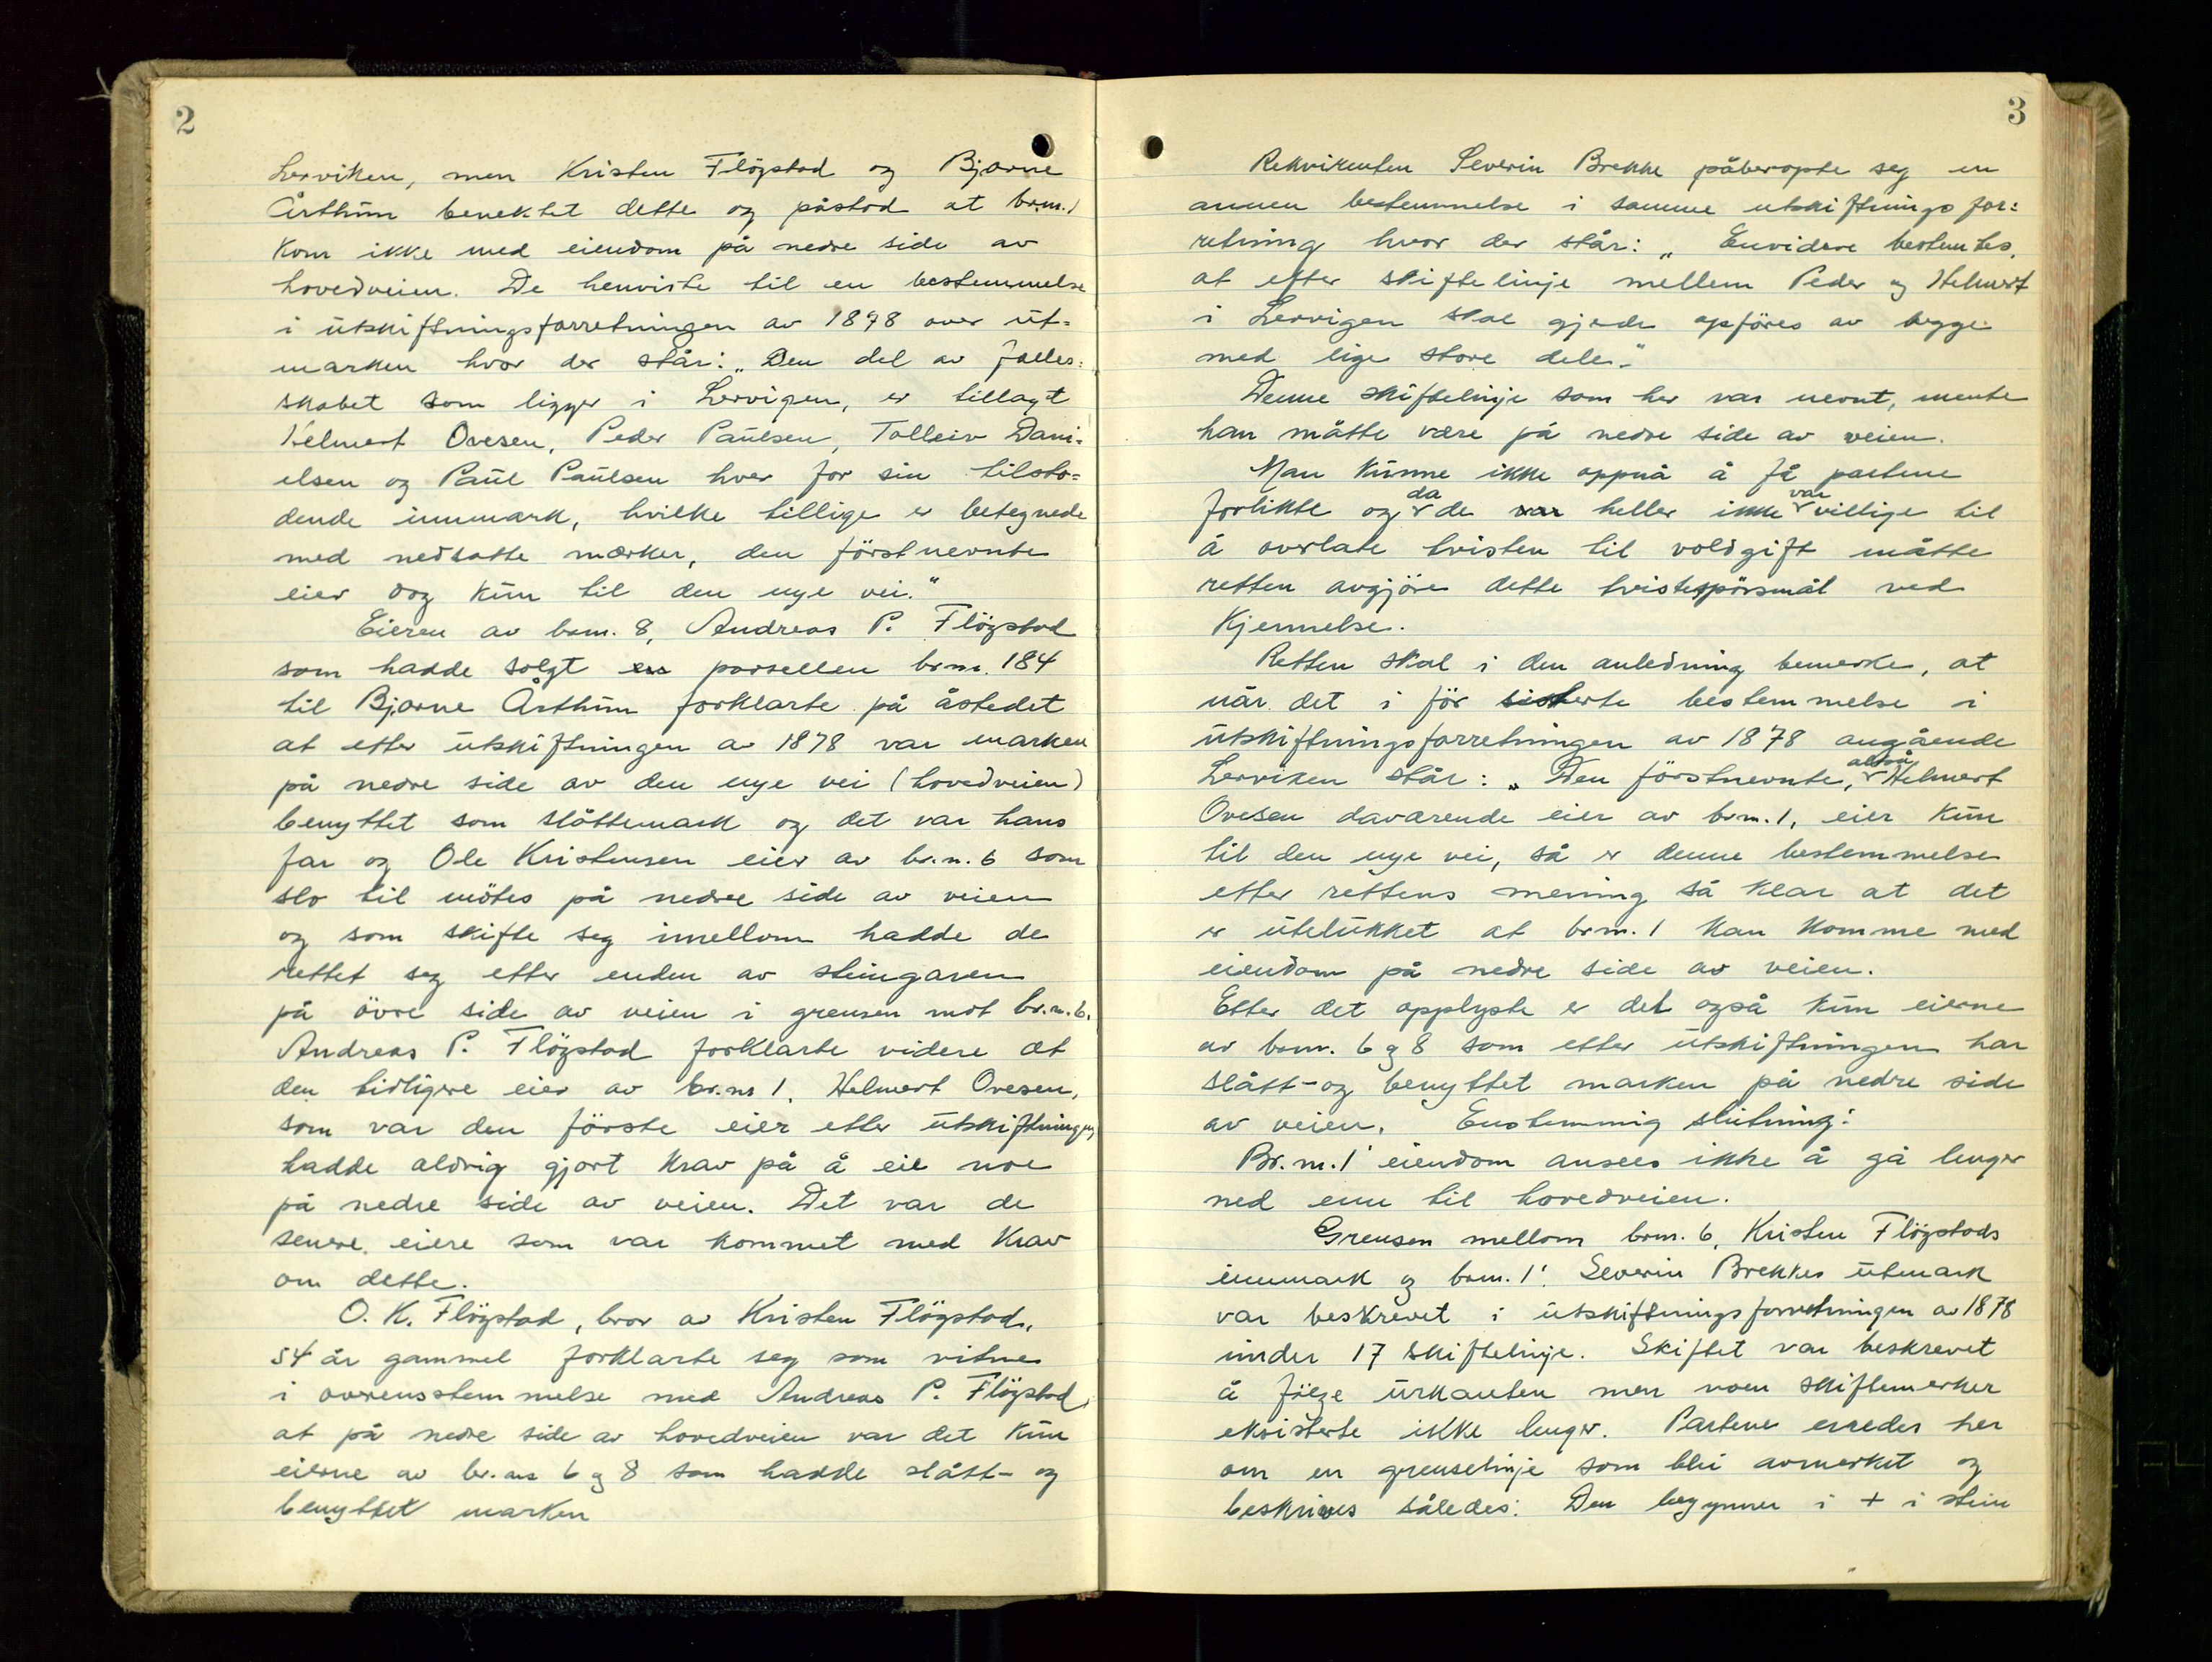 2
Lerviken, men Kristen Flögstad og Bjarne
Årthun benektet dette og påstod at br.nr. 1
kom ikke med eiendom på nedre side av
hovedveien. De henviste til en bestemmelse
i utskiftningsforretningen av 1878 over ut=
marken hvor der står: „Den del av felles=
skabet som ligger i Lervigen, er tillagt
Helmert Ovesen, Peder Paulsen, Tolleiv Dani=
elsen og Paul Paulsen hver for sin tilstø=
dende innmark, hvilke tillige er betegnede
med nedsatte mærker, den förstnevnte
eier dog kun til den nye vei."
Eieren av brnr. 8, Andreas P. Flögstad
som hadde solgt en parsellen br.nr. 184
til Bjarne Årthun forklarte på åstedet
at etter utskiftningen av 1878 var marken
på nedre side av den nye vei (hovedveien)
benyttet som slåttemark og det var hans
far og Ole Kristensen eier av br.n. 6 som
slo til mötes på nedre side av veien
og som skifte seg imellom hadde de
rettet seg etter enden av steingaren
på övre side av veien i grensen mot br.n. 6.
Andreas P. Flögstad forklarte videre at
den tidligere eier av br.nr 1, Helmert Ovesen,
som var den förste eier etter utskiftningen,
hadde aldrig gjort krav på å eie noe
på nedre side av veien. Det var de
senere eiere som var kommet med krav
om dette.
O. K. Flögstad, bror av Kristen Flögstad,
54 år gammel forklarte seg som vitne
i overensstemmelse med Andreas P. Flögstad,
at på nedre side av hovedveien var det kun
eierne av br.nr 6 og 8 som hadde slått- og
benyttet marken
3
Rekvirenten Severin Brekke påberopte seg en
annen bestemmelse i samme utskiftningsfor=
retning hvor der står: „Envidere bestemtes,
at efter skiftelinje mellem Peder og Helmert
i Lervigen skal gjerde opföres av begge
med lige store deler."
Denne skiftelinje som her var nevnt, mente
han måtte være på nedre side av veien.
Man kunne ikke oppnå å få partene
forlikte og da de var heller ikke var villige til
å overlate tvisten til voldgift måtte
retten avgjöre dette tvistespörsmål ved
Kjennelse.
Retten skal i den anledning bemerke, at
når det i för siterte bestemmelse i
utskiftningsforretningen av 1878 angående
Lerviken står: „Den förstnevnte, altså Helmert
Ovesen daværende eier av br.nr. 1, eier kun
til den nye vei, så er denne bestemmelse
etter rettens mening så klar at det
er utelukket at brnr. 1 kan komme med
eiendom på nedre side av veien.
Etter det opplyste er det også kun eierne
av brnr. 6 og 8 som etter utskiftningen har
slått- og benyttet marken på nedre side
av veien. Enstemmig slutning:
Br.nr. 1' eiendom ansees ikke å gå lenger
ned enn til hovedveien.
Grensen mellom brnr. 6, Kristen Flögstads
innmark og brnr. 1'. Severin Brekkes utmark
var beskrevet i utskiftningsforretningen av 1878
under 17 skiftelinje. Skiftet var beskrevet
å fölge urkanten men noen skiftemerker
eksisterte ikke lenger. Partene enedes her
om en grenselinje som blei avmerket og
beskrives således: Den begynner i + i stein